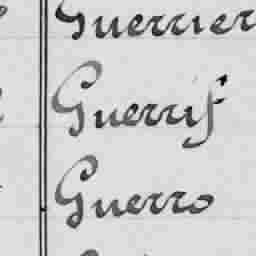 Guerrier
Guerrif
Guerro